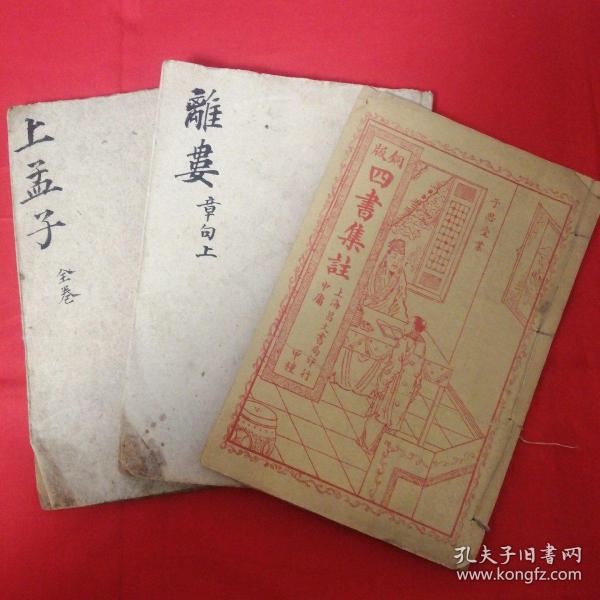 上孟子
全卷
離婁
章句上
銅版
四書集註
上海昌文書局印行
中庸
甲種
子思受業
孔夫子旧书网
www.kongfz.com